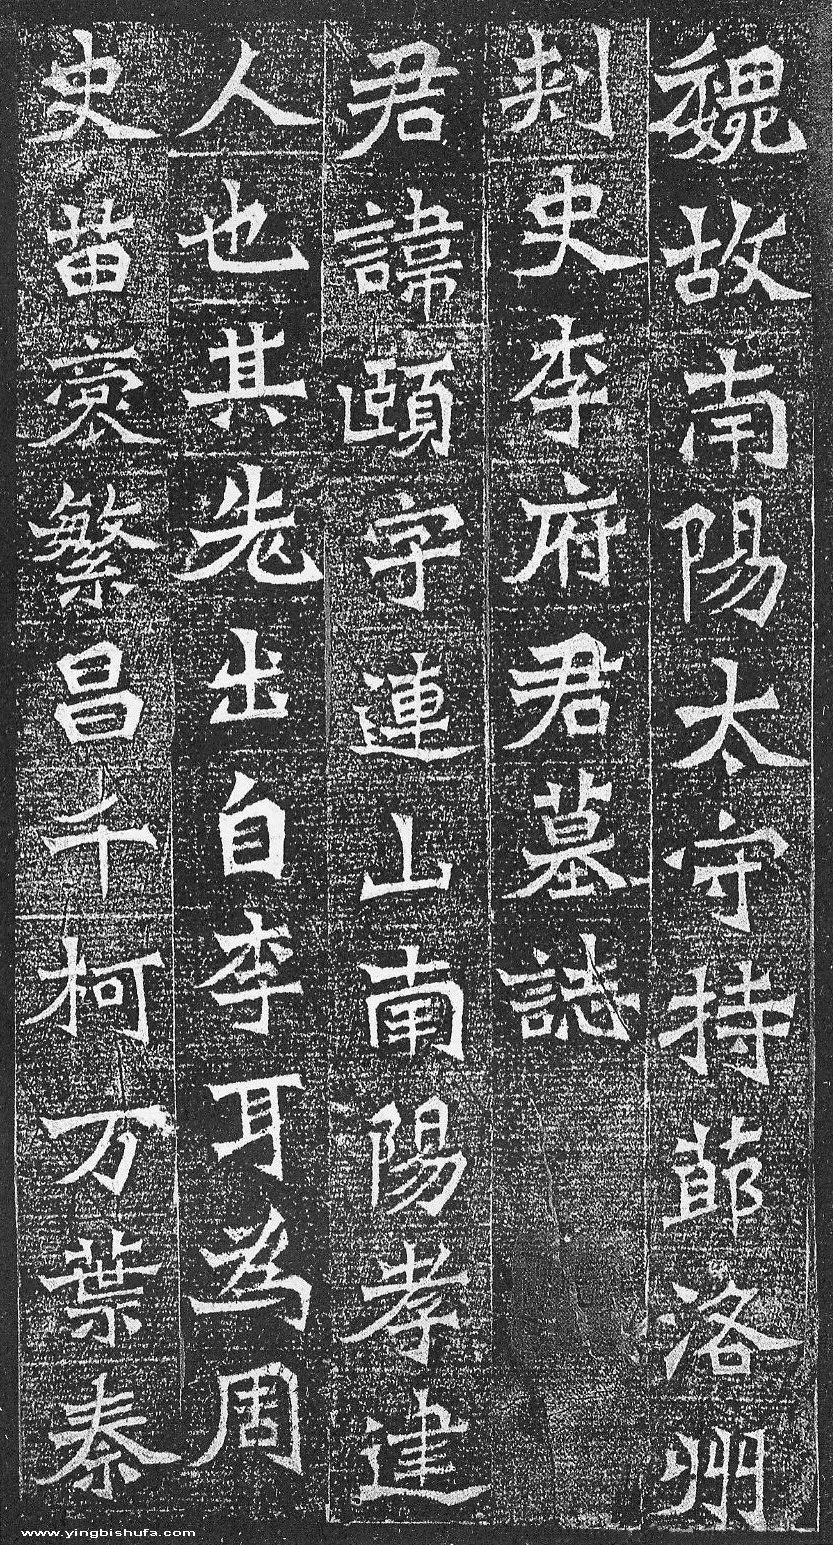 魏故南陽太守持節洛州
刾史李府君墓誌
君諱頤字連山南陽孝建
人也其先出自李耳為周
史苗裔繁昌千柯万葉秦
www.yingbishufa.com